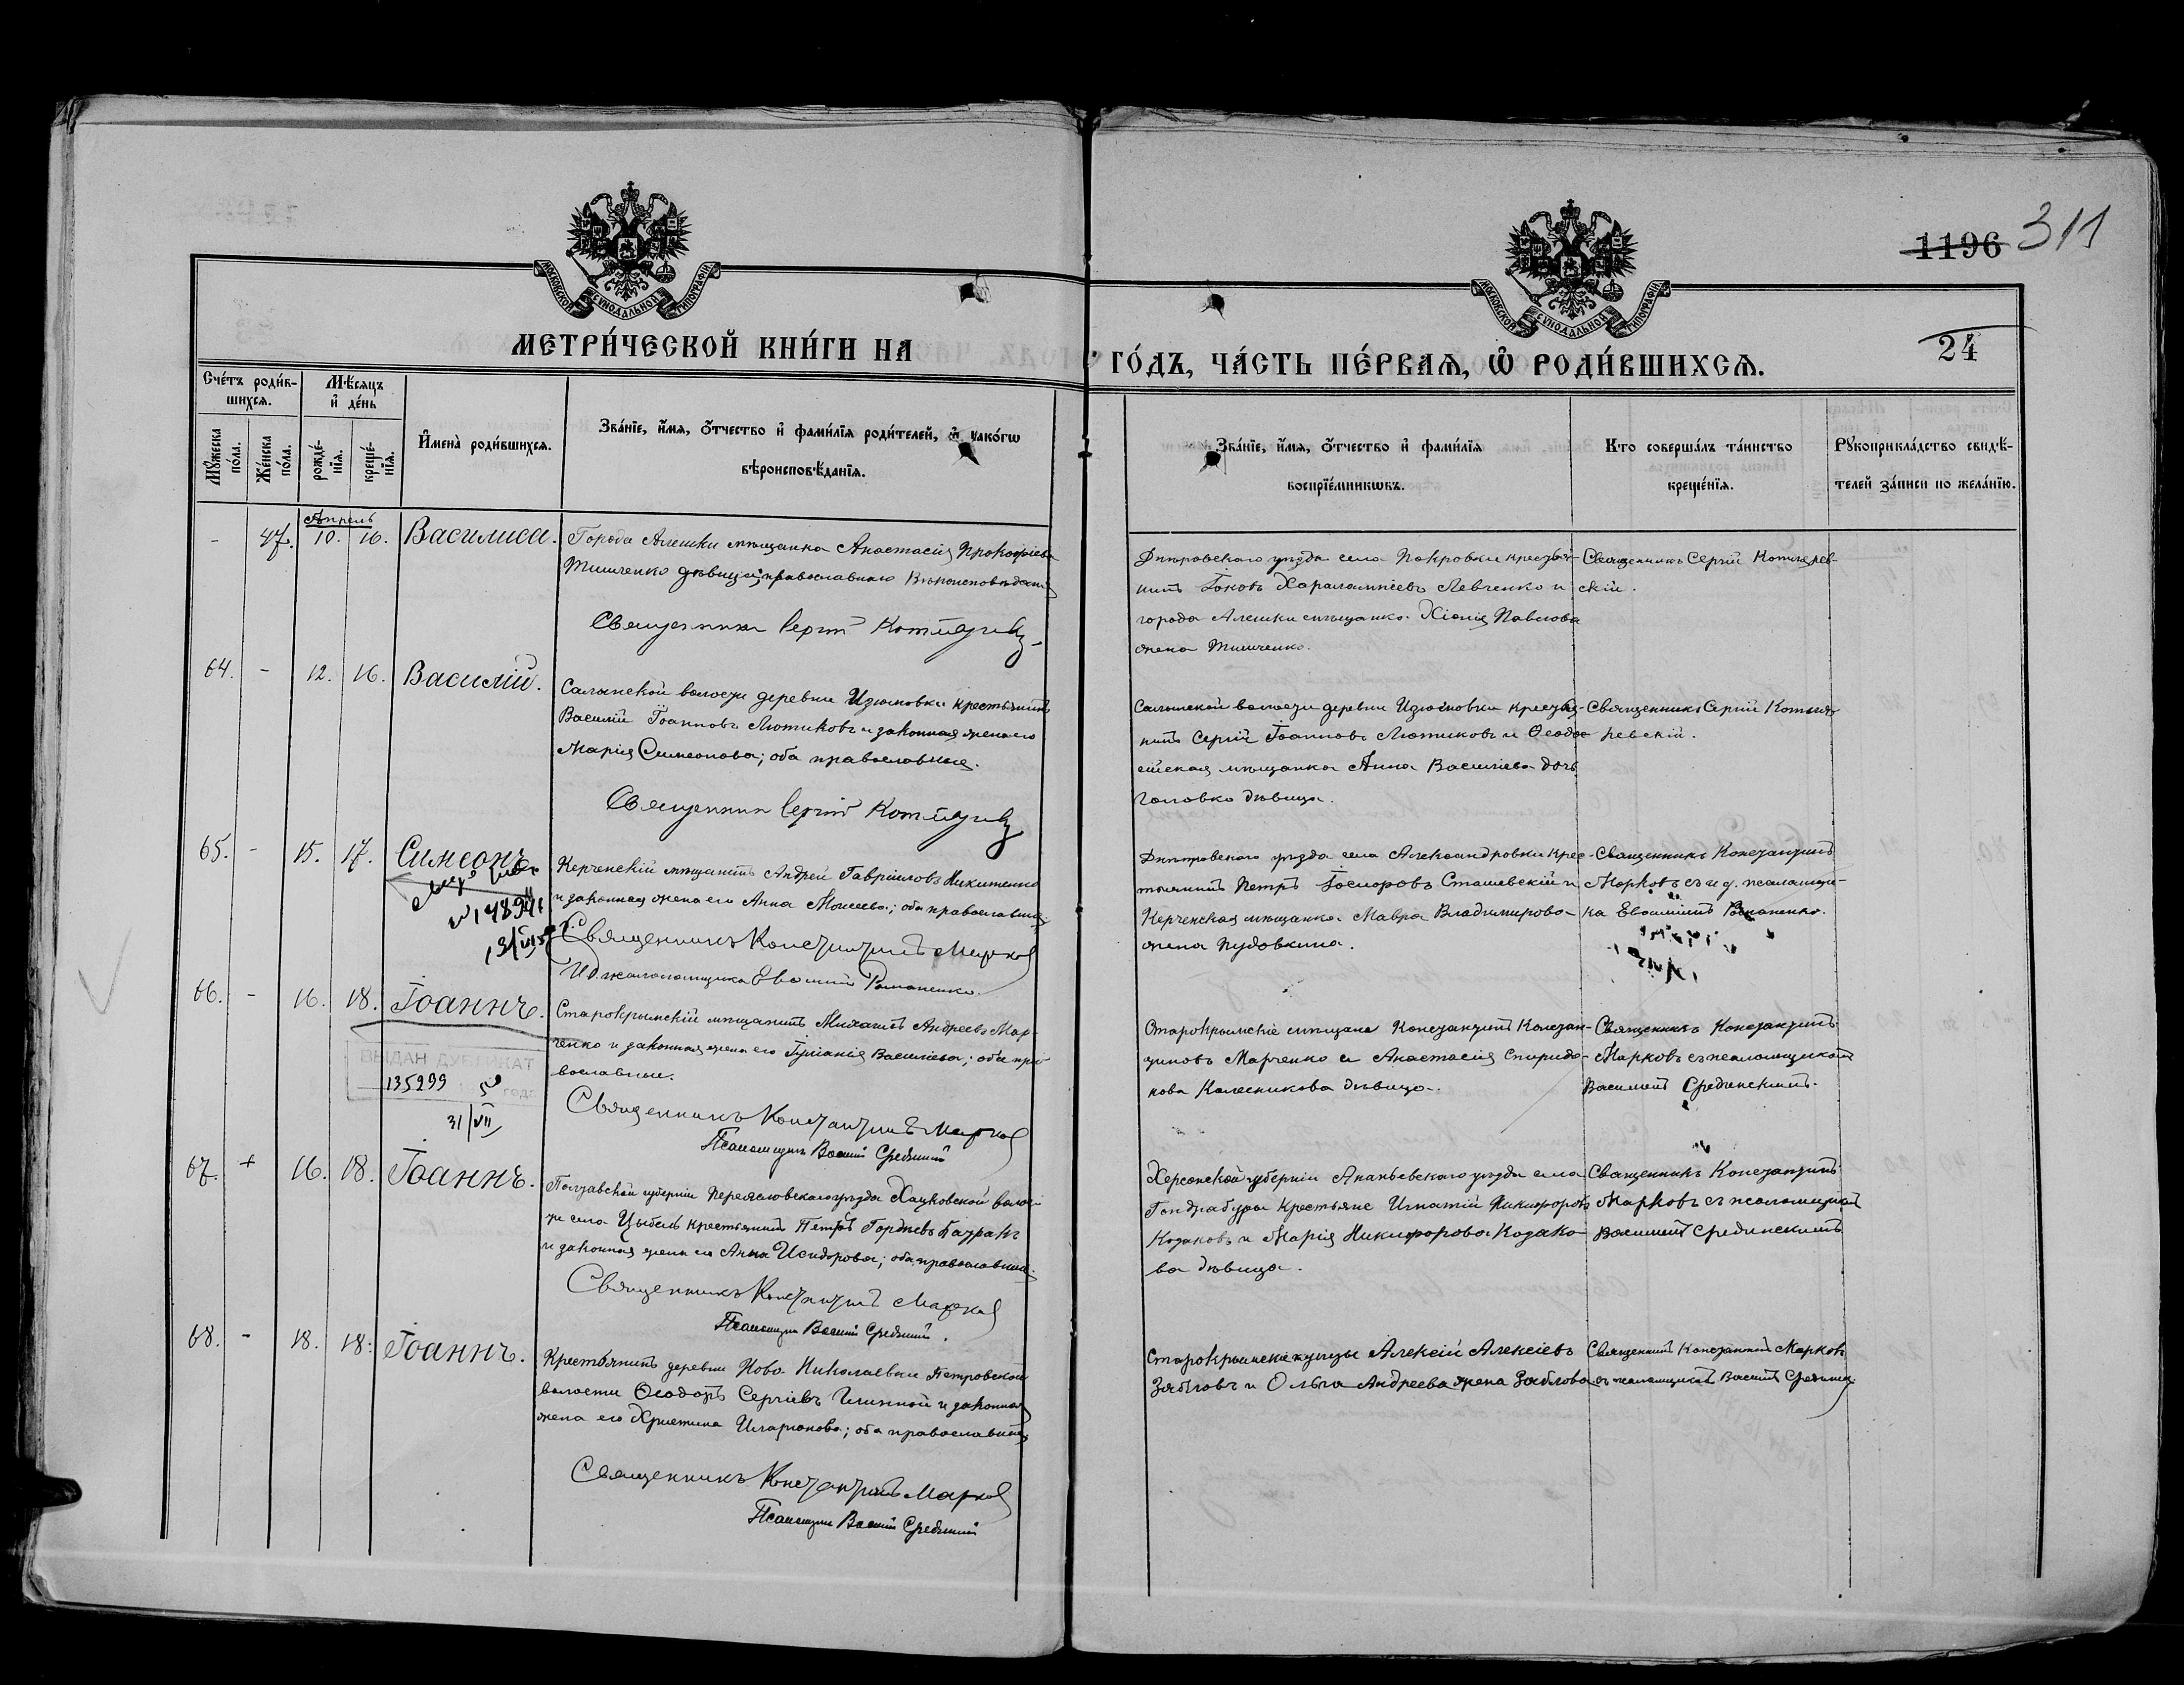 1196 311
24
МОСКОВСКОЙ СѴНОДАЛЬНОЙ ТИПОГРАФІИ
МОСКОВСКОЙ СѴНОДАЛЬНОЙ ТИПОГРАФІИ
МЕТРИ́ЧЕСКОЙ КНИ́ГИ НА
ГО́ДЪ, ЧА́СТЬ ПЕ́РВАѦ, Ѡ҆ РОДИ́ВШИХСѦ.
Сче́тъ роди́в-
шихсѧ.
Мѣ́сѧцъ
и҆ де́нь
Мꙋ́жеска
по́ла.
Же́нска
по́ла.
рожде́-
нїѧ.
креще́-
нїѧ.
И҆мена̀ роди́вшихсѧ.
Зва́нїе, и҆́мѧ, ѻ҆́тчество и҆ фами́лїѧ роди́телей, и҆ како́гѡ
вѣроисповѣ́данїѧ.
Зва́нїе, и҆́мѧ, ѻ҆́тчество и҆ фами́лїѧ
воспрїе́мникѡвъ.
Кто соверша́лъ та́инство
креще́нїѧ.
Рꙋкоприкла́дство свидѣ́-
телей за́писи по жела́нїю.
Апрель
- 47. 10. 16. Василиса.
Города Алешки мѣщанка Анастасія Прокофіева
Тимченко дѣвица; православнаго вѣроисповѣданія
Священникъ Сергій
Днѣпровскаго уѣзда села Покровки крестья-
нинъ Іаковъ Харалампіевъ Левченко и
города Алешки мѣщанка Хіонія Павлова
жена Тимченко.
Священникъ Сергій Котляров-
скій.
64. - 12. 16. Василій.
Салынской волости деревни Изюмовки крестьянинъ
Василій Іоанновъ Лютиковъ и законная жена его
Марія Симеонова; оба православные.
Священник Сергій
Салынской волости деревни Изюмовки крестья-
нинъ Сергій Іоанновъ Лютиковъ и Ѳеодо-
сійская мѣщанка Анна Василіева дочь
Головко дѣвица.
Священникъ Сергій Котля-
ревскій.
65. - 15. 17. Симеонъ
Керченскій мѣщанинъ Андрей Гавріиловъ Никитенко
и законная жена его Анна Моисеева; оба православные
Священникъ Константинъ Марков
И.д. псаломщика Евфимій Романенко.
Днѣпровскаго уѣзда села Александровки крес-
тьянинъ Петръ Сташевскій и
Керченская мѣщанка Мавра Владимирова
жена Пудовкина.
Священникъ Константинъ
Марковъ съ и д. псаломщи-
ка Евфиміемъ Романенко.
66. - 16. 18. Іоаннъ.
ВЫДАН ДУБЛИКАТ
135299
31/VII
Старокрымскій мѣщанинъ Михаилъ Андреевъ Мар-
ченко и законная жена его Іуліанія Василіева; оба пра-
вославные.
Священникъ Константинъ Марков
Псаломщикъ Василій Срединскій
Старокрымскіе мѣщане Константинъ Констан-
тиновъ Марченко и Анастасія Спиридо-
нова Колесникова дѣвица.
Священникъ Константинъ
Марковъ съ псаломщикомъ
Василіемъ Срединскимъ.
67. + 16. 18. Іоаннъ.
Полтавской губерніи Переяславскаго уѣзда волос-
ти села Цыбель крестьянинъ Петръ Гордіевъ
и законная жена его Анна Исидорова; оба православные.
Священникъ Константинъ Марков
Псаломщик Василій Срединскій.
Херсонской губерніи Ананьевскаго уѣзда села
Гандрабуры крестьяне Игнатій Никифоровъ
Козаковъ и Марія Никифорова Козако-
ва дѣвица.
Священникъ Константинъ
Марковъ съ псаломщикомъ
Василіемъ Срединскимъ
68. - 18. 18. Іоаннъ.
Крестьянинъ деревни Ново-Николаевки Петровской
волости Ѳеодоръ Сергіевъ и законная
жена его Христина Иларіонова; оба православные
Священникъ Константинъ Марков
Псаломщик Василій Срединскій
Старокрымскіе купцы Алексій Алексіевъ
Зябловъ и Ольга Андреева жена Зяблова
Священникъ Константинъ Марковъ
съ псаломщикомъ Василіемъ Срединск.